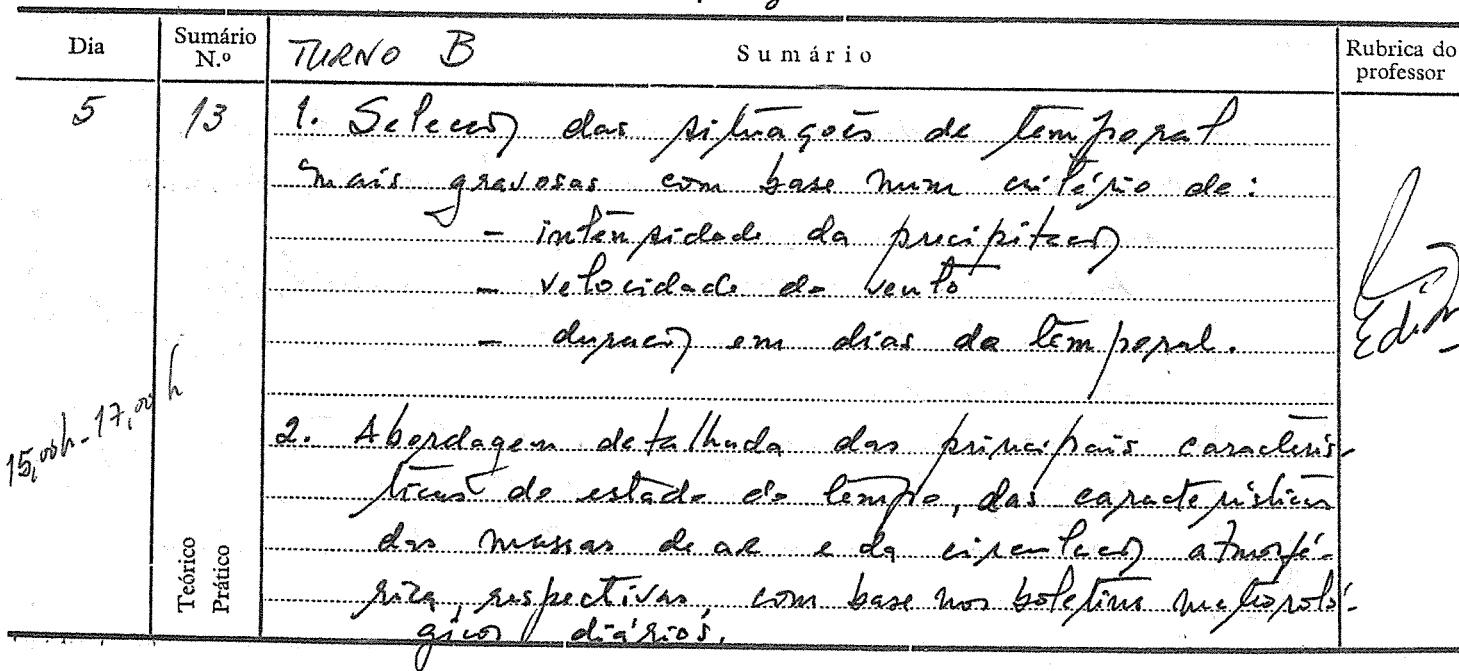 Dia
Sumário N.º
TURNO B
Sumário
Rubrica do professor
5
13
1. Selecção das situações de temporal
mais gravosas com base num critério de:
- intensidade da precipitação
- velocidade do vento
- duração em dias do temporal.
15,00h - 17,00h
2. Abordagem detalhada das principais caracterís-
ticas do estado do tempo, das características
das massas de ar e da circulação atmosfé-
rica, respectivas, com base nos boletins meteoroló-
gicos diários.
Teórico
Prático